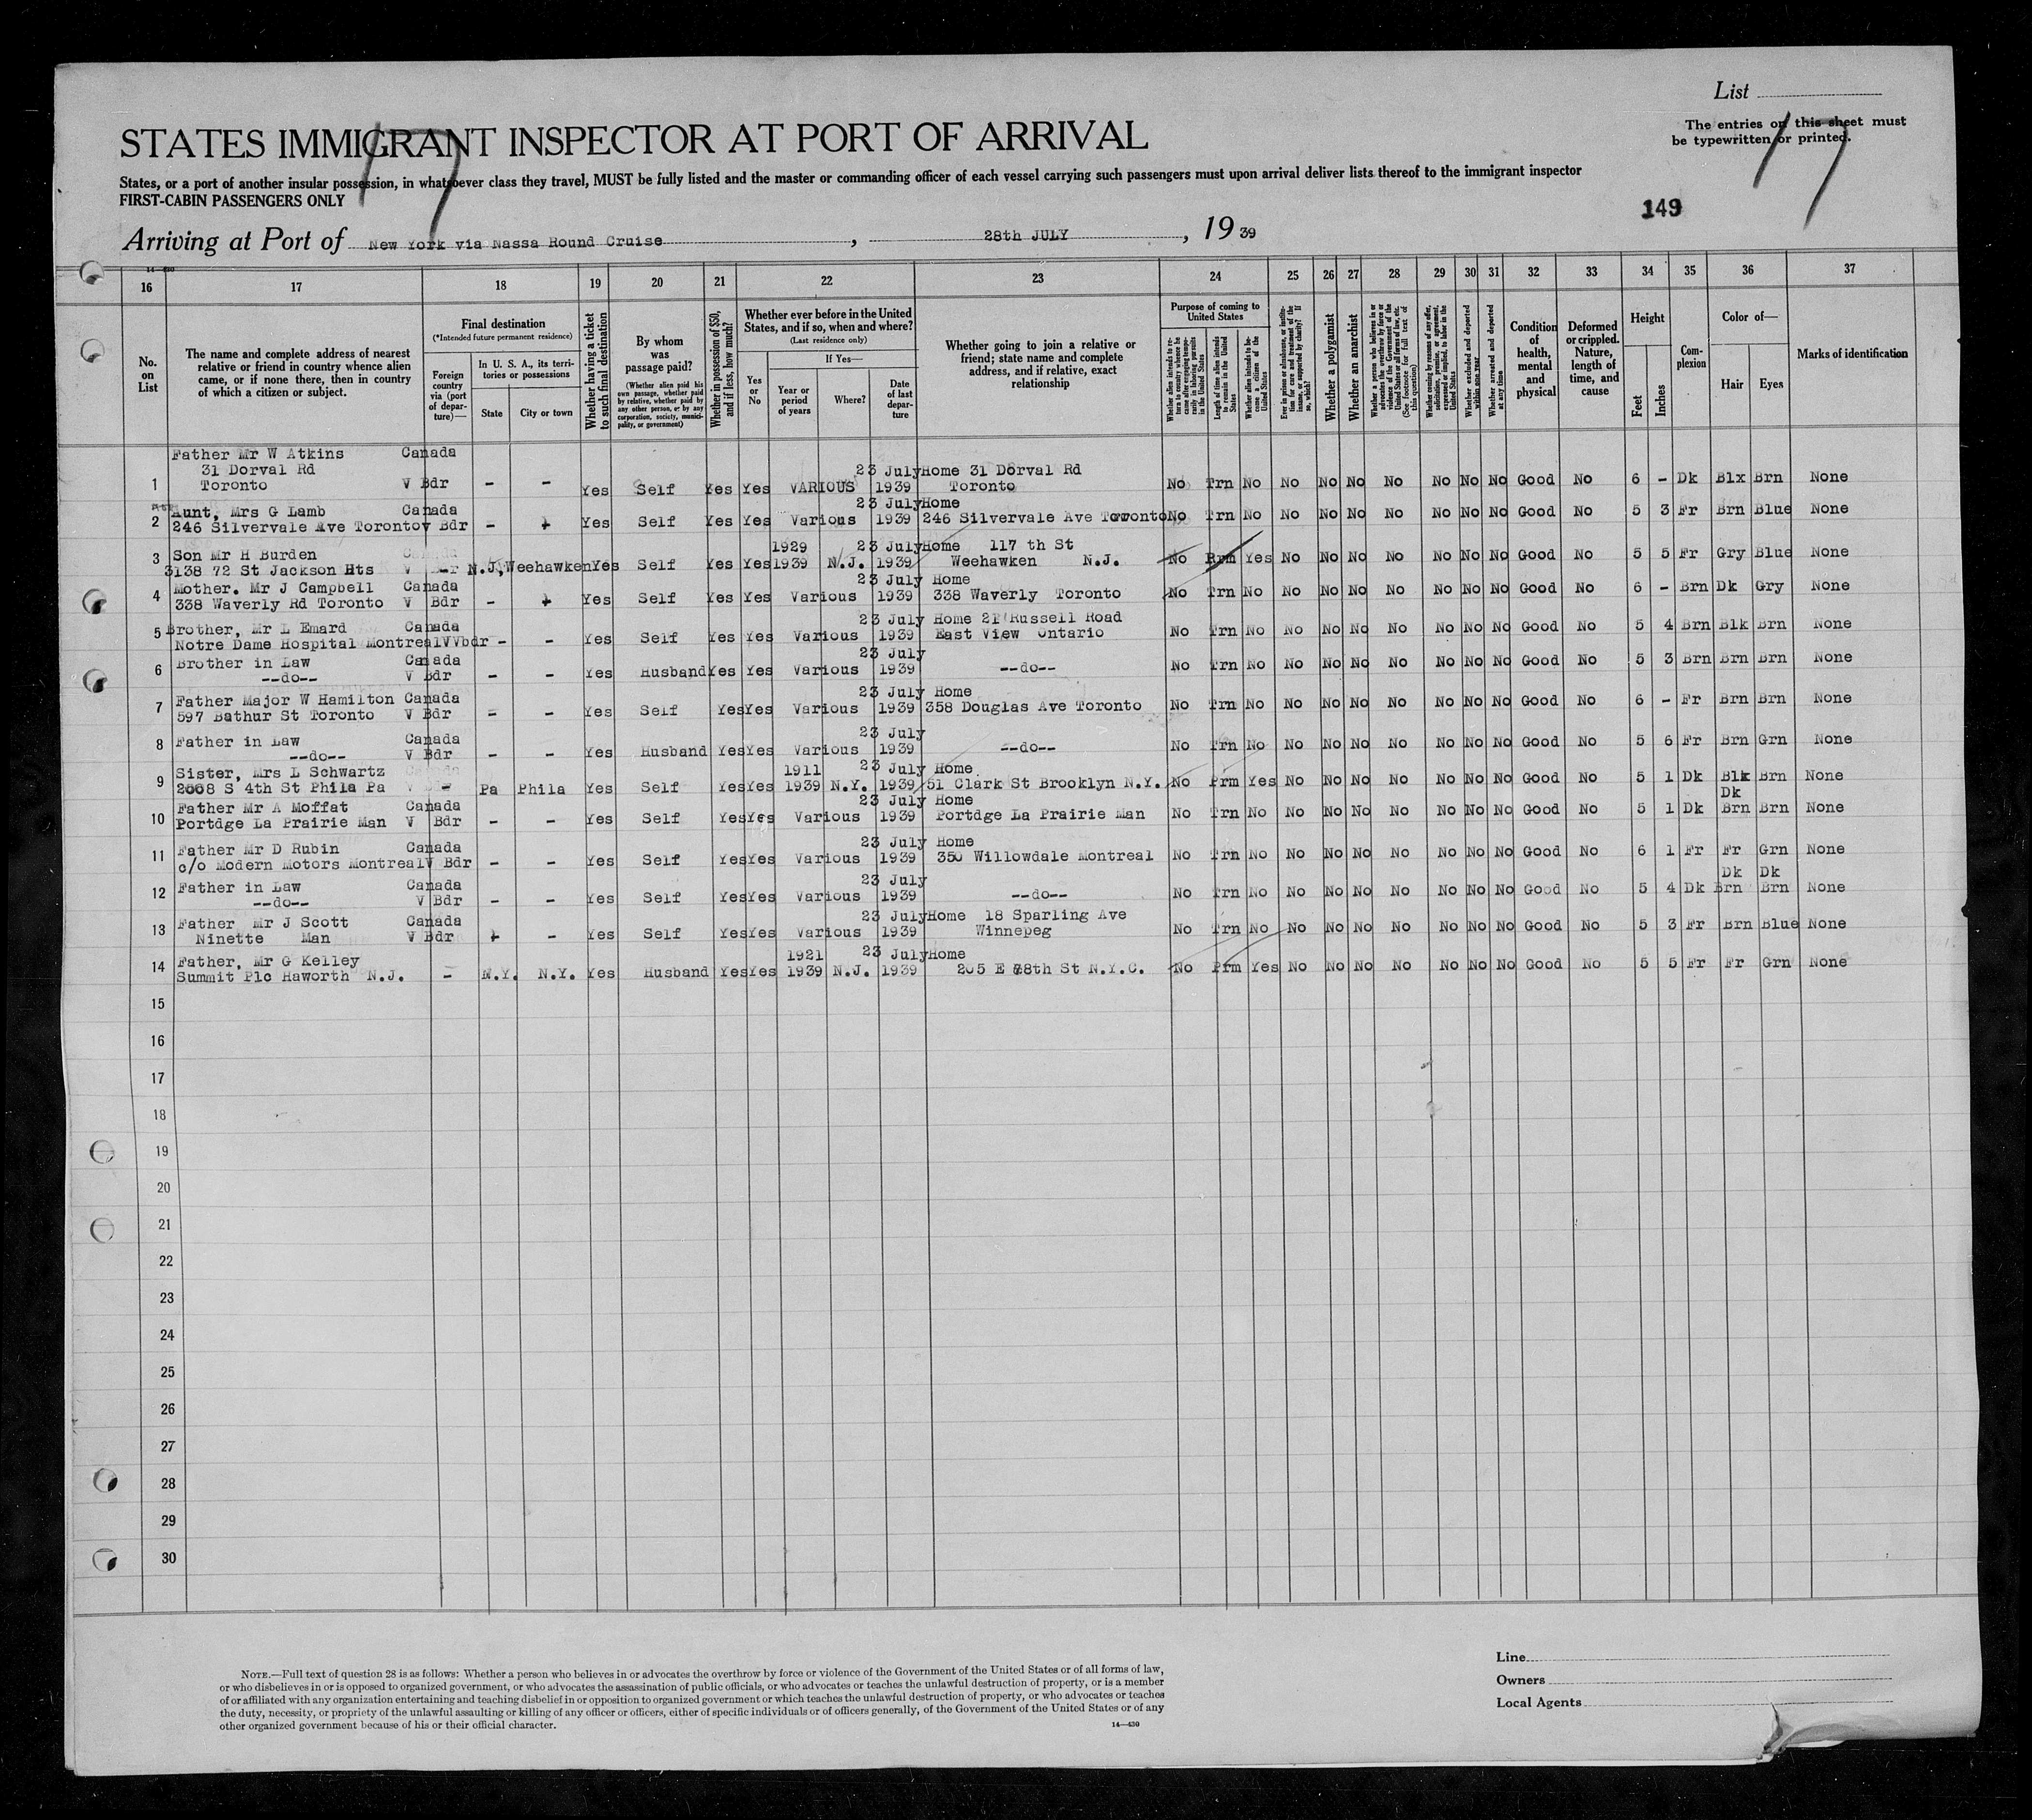 List
The entries on this sheet must
be typewritten or printed.
17
17
STATES IMMIGRANT INSPECTOR AT PORT OF ARRIVAL
States, or a port of another insular possession, in whatsoever class they travel, MUST be fully listed and the master or commanding officer of each vessel carrying such passengers must upon arrival deliver lists thereof to the immigrant inspector
FIRST-CABIN PASSENGERS ONLY
149
Arriving at Port of New York via Nassa Round Cruise, 28th JULY, 1939
14—430
16 17 18 19 20 21 22 23 24 25 26 27 28 29 30 31 32 33 34 35 36 37
No. on List
The name and complete address of nearest relative or friend in country whence alien came, or if none there, then in country of which a citizen or subject.
Final destination
(*Intended future permanent residence)
Foreign country via (port of departure)—
In U. S. A., its territories or possessions
State
City or town
Whether having a ticket to such final destination
By whom was passage paid?
(Whether alien paid his own passage, whether paid by relative, whether paid by any other person, or by any corporation, society, municipality, or government)
Whether in possession of $50, and if less, how much?
Whether ever before in the United States, and if so, when and where?
(Last residence only)
Yes or No
If Yes—
Year or period of years
Where?
Date of last departure
Whether going to join a relative or friend; state name and complete address, and if relative, exact relationship
Purpose of coming to United States
Whether alien intends to return to country whence he came after engaging temporarily in laboring pursuits in the United States
Length of time alien intends to remain in the United States
Whether alien intends to become a citizen of the United States
Ever in prison or almshouse, or institution for care and treatment of the insane, or supported by charity? If so, which?
Whether a polygamist
Whether an anarchist
Whether a person who believes in or advocates the overthrow by force or violence of the Government of the United States or all forms of law, etc. (See footnote for full text of this question)
Whether coming by reasons of any offer, solicitation, promise, or agreement, expressed or implied, to labor in the United States
Whether excluded and deported within one year
Whether arrested and deported at any time
Condition of health, mental and physical
Deformed or crippled. Nature, length of time, and cause
Height
Feet
Inches
Complexion
Color of—
Hair
Eyes
Marks of identification
Father Mr W Atkins Canada
31 Dorval Rd 23 July Home 31 Dorval Rd
1 Toronto V Bdr - - Yes Self Yes Yes VARIOUS 1939 Toronto No Trn No No No No No No No No Good No 6 - Dk Blx Brn None
Aunt, Mrs G Lamb Canada 23 July Home
2 246 Silvervale Ave Toronto V Bdr - - Yes Self Yes Yes Various 1939 246 Silvervale Ave Toronto No Trn No No No No No No No No Good No 5 3 Fr Brn Blue None
Son Mr H Burden 1929 23 July Home 117 th St
3 3138 72 St Jackson Hts V - N.J, Weehawken Yes Self Yes Yes 1939 N.J. 1939 Weehawken N.J. No Prm Yes No No No No No No No Good No 5 5 Fr Gry Blue None
Mother. Mr J Campbell Canada 23 July Home
4 338 Waverly Rd Toronto V Bdr - - Yes Self Yes Yes Various 1939 338 Waverly Toronto No Trn No No No No No No No No Good No 6 - Brn Dk Gry None
Brother, Mr L Emard Canada 23 July Home 21 Russell Road
5 Notre Dame Hospital Montreal V Vbdr - - Yes Self Yes Yes Various 1939 East View Ontario No Trn No No No No No No No No Good No 5 4 Brn Blk Brn None
Brother in Law Canada 23 July
6 --do-- V Bdr - - Yes Husband Yes Yes Various 1939 --do-- No Trn No No No No No No No No Good No 5 3 Brn Brn Brn None
Father Major W Hamilton Canada 23 July Home
7 597 Bathur St Toronto V Bdr - - Yes Self Yes Yes Various 1939 358 Douglas Ave Toronto No Trn No No No No No No No No Good No 6 - Fr Brn Brn None
Father in Law Canada 23 July
8 --do-- V Bdr - - Yes Husband Yes Yes Various 1939 --do-- No Trn No No No No No No No No Good No 5 6 Fr Brn Grn None
Sister, Mrs L Schwartz 1911 23 July Home
9 2008 S 4th St Phila Pa - Pa Phila Yes Self Yes Yes 1939 N.Y. 1939 51 Clark St Brooklyn N.Y. No Prm Yes No No No No No No No Good No 5 1 Dk Blk Brn None
Father Mr A Moffat Canada 23 July Home Dk
10 Portdge La Prairie Man V Bdr - - Yes Self Yes Yes Various 1939 Portdge La Prairie Man No Trn No No No No No No No No Good No 5 1 Dk Brn Brn None
Father Mr D Rubin Canada 23 July Home
11 c/o Modern Motors Montreal V Bdr - - Yes Self Yes Yes Various 1939 350 Willowdale Montreal No Trn No No No No No No No No Good No 6 1 Fr Fr Grn None
Father in Law Canada 23 July Dk Dk
12 --do-- V Bdr - - Yes Self Yes Yes Various 1939 --do-- No Trn No No No No No No No No Good No 5 4 Dk Brn Brn None
Father Mr J Scott Canada 23 July Home 18 Sparling Ave
13 Ninette Man V Bdr - - Yes Self Yes Yes Various 1939 Winnepeg No Trn No No No No No No No No Good No 5 3 Fr Brn Blue None
Father, Mr G Kelley 1921 23 July Home
14 Summit Plc Haworth N.J. - N.Y. N.Y. Yes Husband Yes Yes 1939 N.J. 1939 205 E 78th St N.Y.C. No Prm Yes No No No No No No No Good No 5 5 Fr Fr Grn None
15
16
17
18
19
20
21
22
23
24
25
26
27
28
29
30
NOTE.—Full text of question 28 is as follows: Whether a person who believes in or advocates the overthrow by force or violence of the Government of the United States or of all forms of law,
or who disbelieves in or is opposed to organized government, or who advocates the assassination of public officials, or who advocates or teaches the unlawful destruction of property, or is a member
of or affiliated with any organization entertaining and teaching disbelief in or opposition to organized government or which teaches the unlawful destruction of property, or who advocates or teaches
the duty, necessity, or propriety of the unlawful assaulting or killing of any officer or officers, either of specific individuals or of officers generally, of the Government of the United States or of any
other organized government because of his or their official character.
14—430
Line
Owners
Local Agents